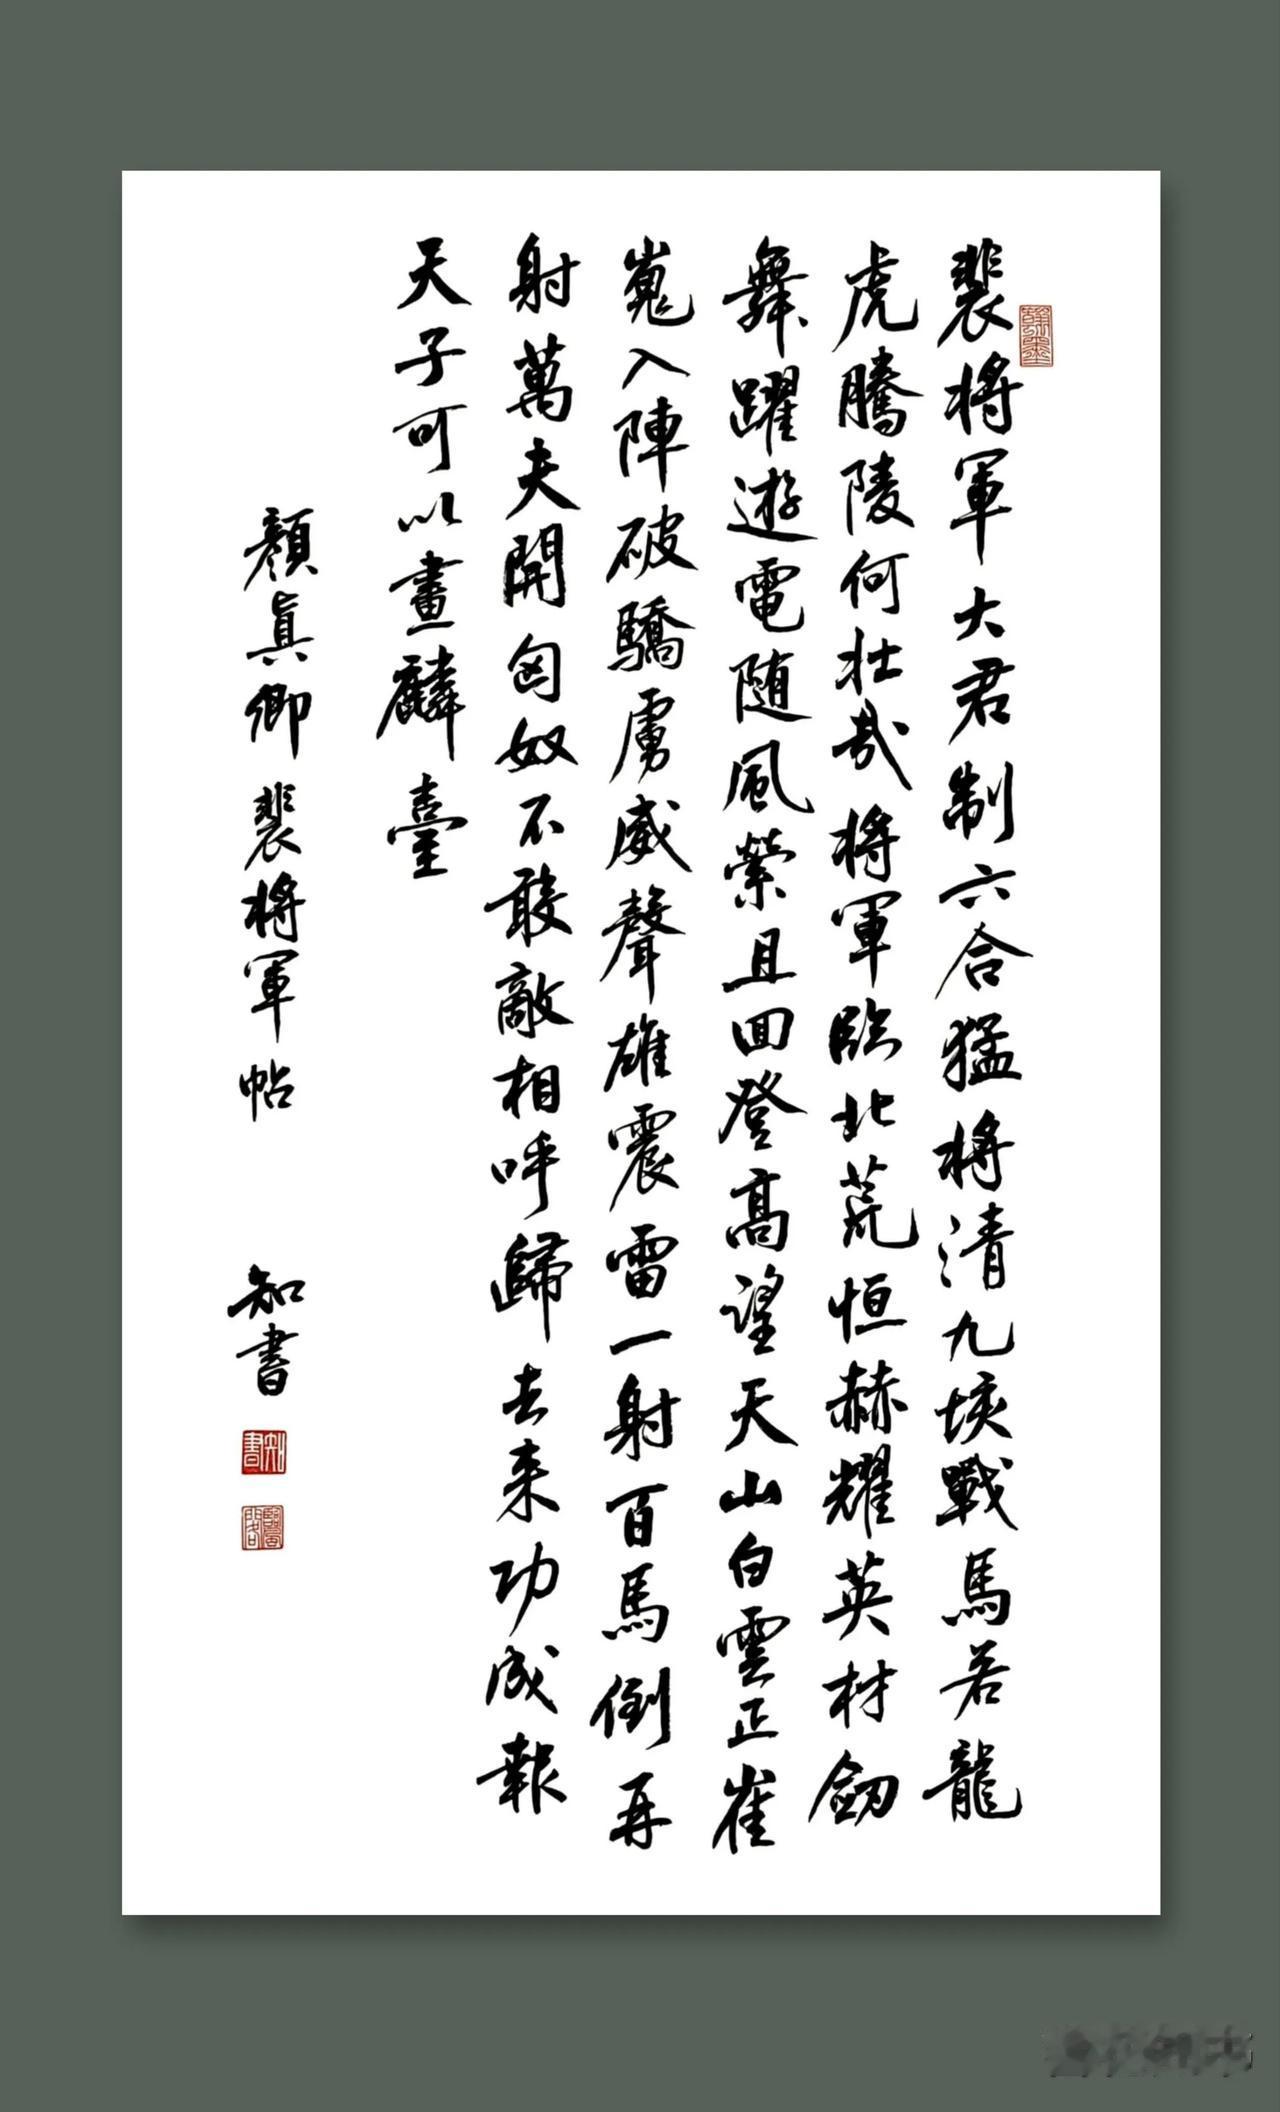 裴将軍大君制六合猛将清九垓戰馬若龍
虎騰陵何壮哉将軍臨北荒恒赫耀英材劒
舞躍遊電随風縈且回登高望天山白雲正崔
嵬入陣破驕虜威聲雄震雷一射百馬倒再
射萬夫開匈奴不敢敵相呼歸去来功成報
天子可以畫麟臺
顏真卿裴将軍帖 知書
翰墨
知書